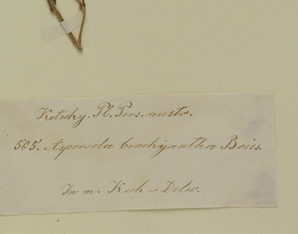 Kotschy. Pl. Pers. austr.
565. Asperula brachyantha Boiss.
In m. Kuh-Delu.